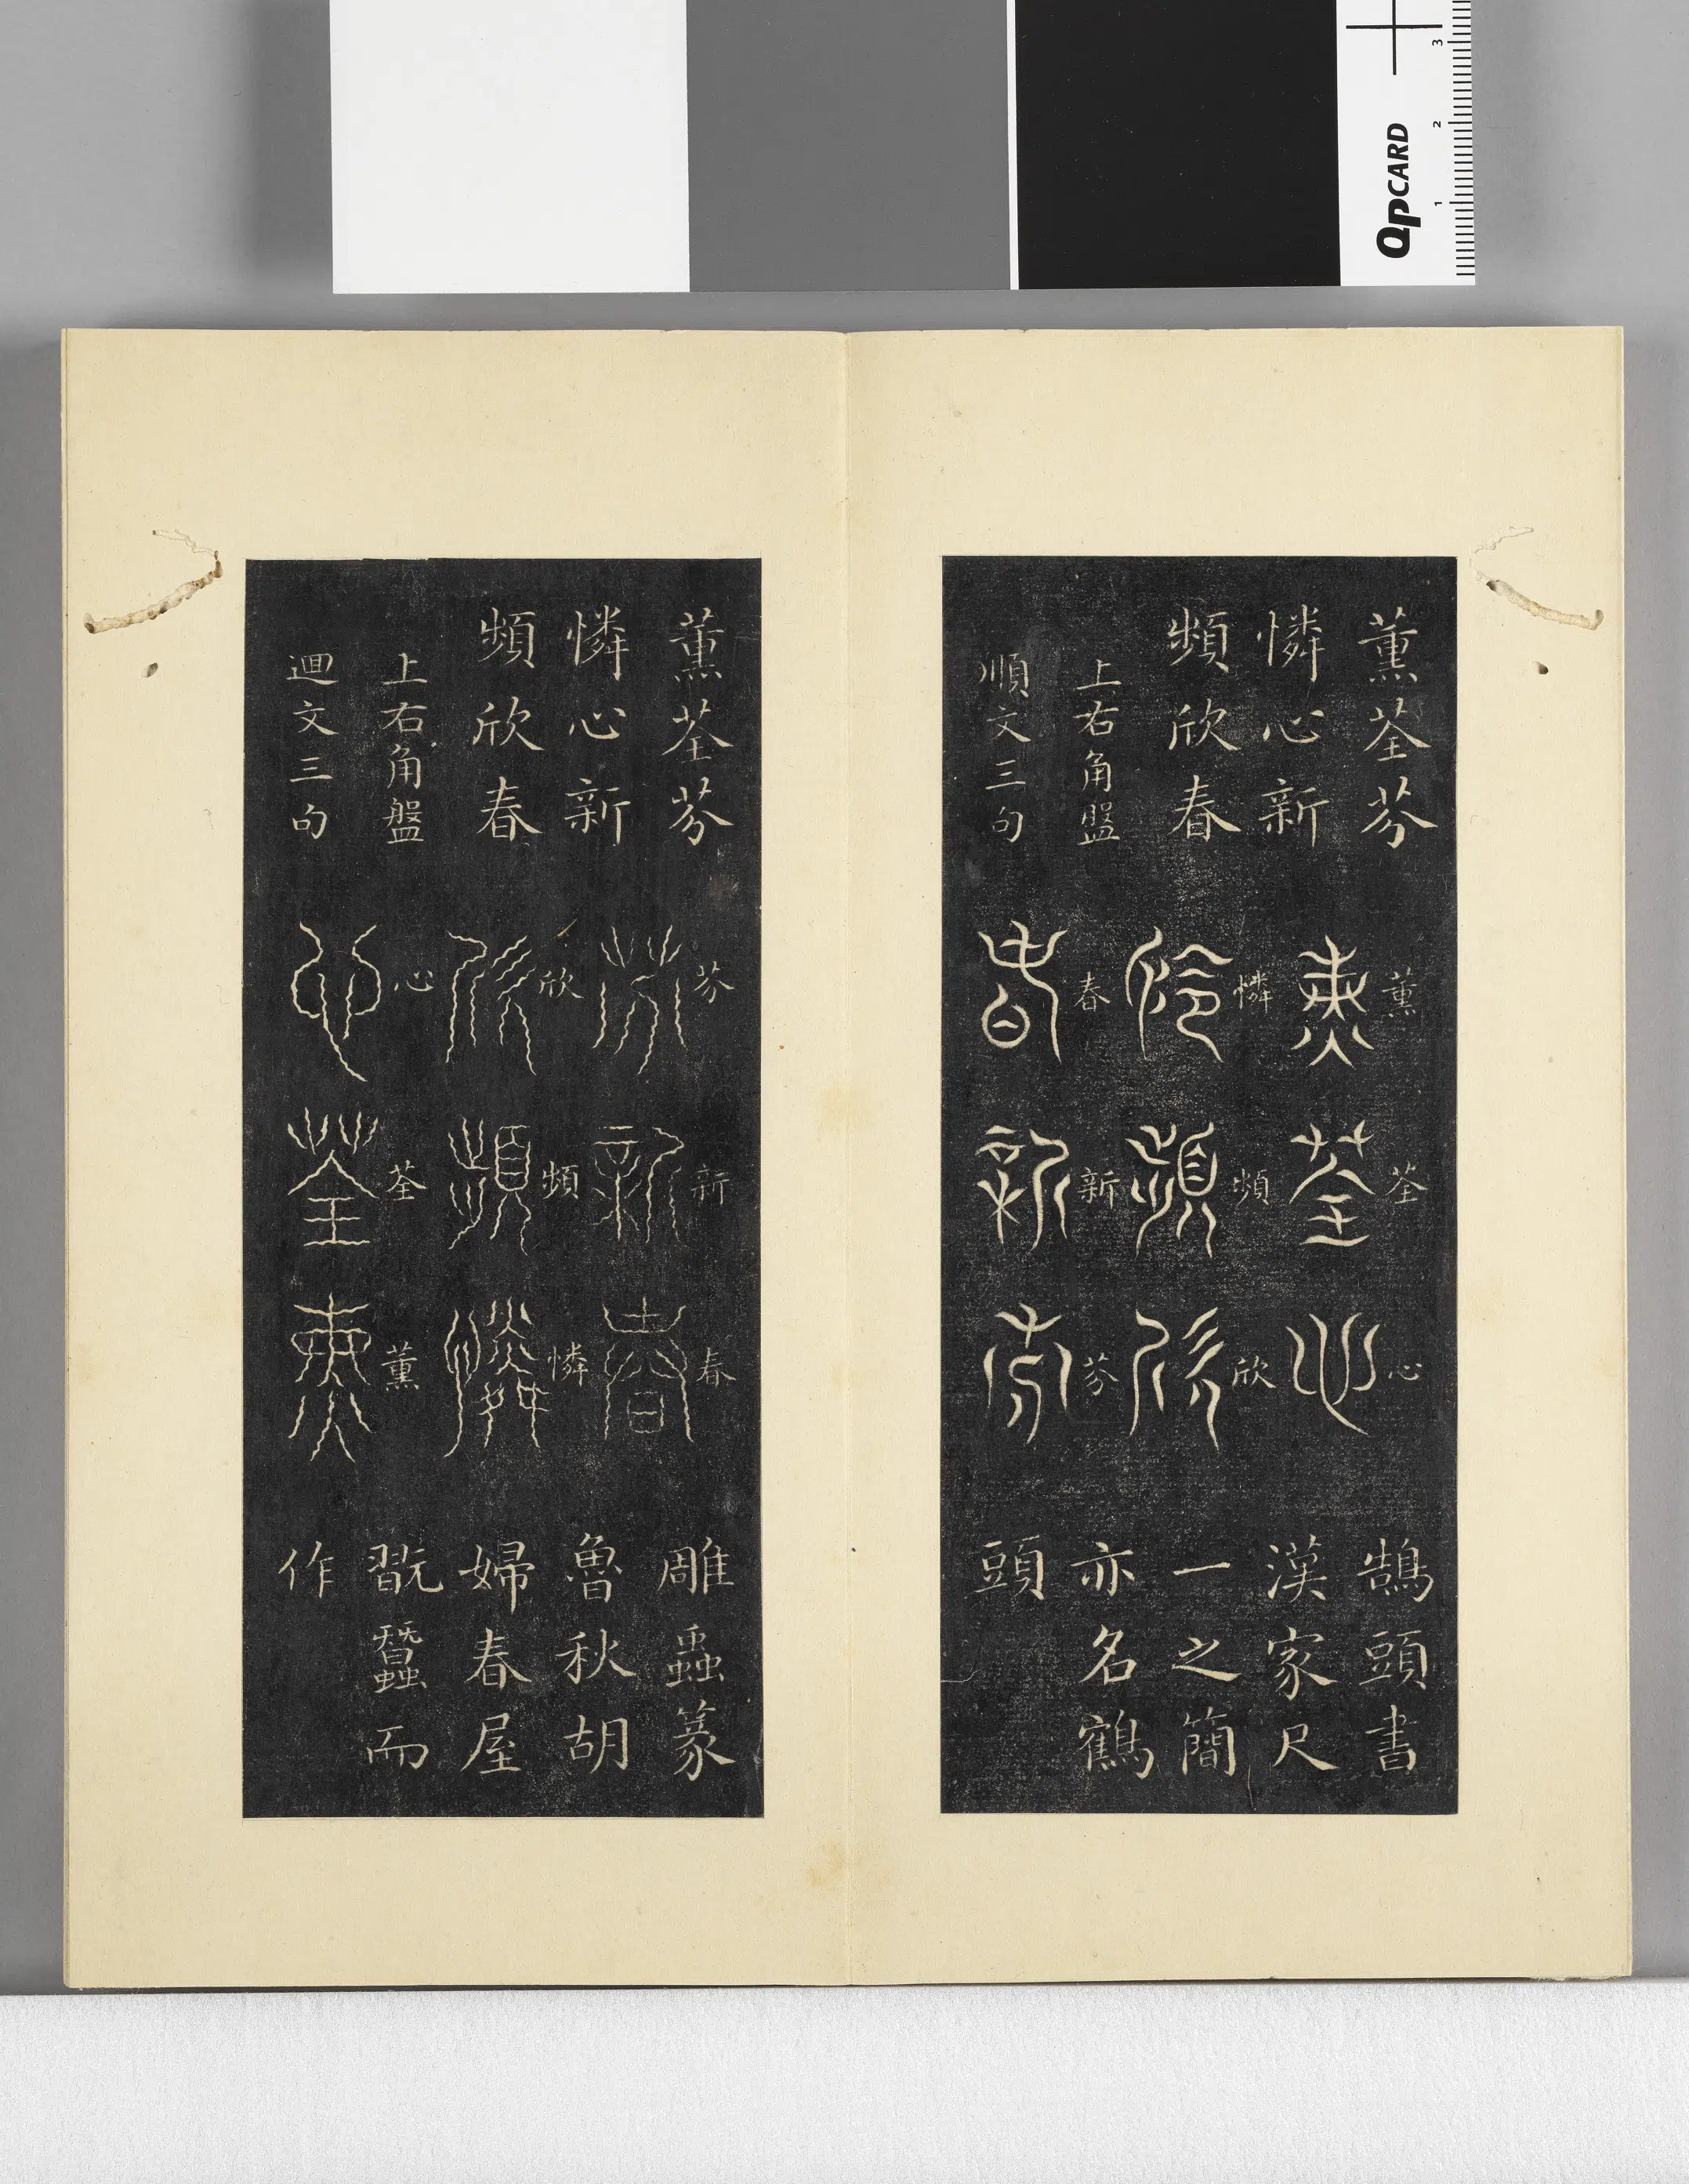 QPCARD
1 2 3
薰荃芬
憐心新
頻欣春
上右角盤
順文三句
薰荃心
薰荃心
憐頻欣
憐頻欣
春新芬
春新芬
鵠頭書
漢家尺
一之簡
亦名鶴
頭
薰荃芬
憐心新
頻欣春
上右角盤
迴文三句
芬新春
芬新春
欣頻憐
欣頻憐
心荃薰
心荃薰
雕蟲篆
魯秋胡
婦春屋
翫蠶而
作